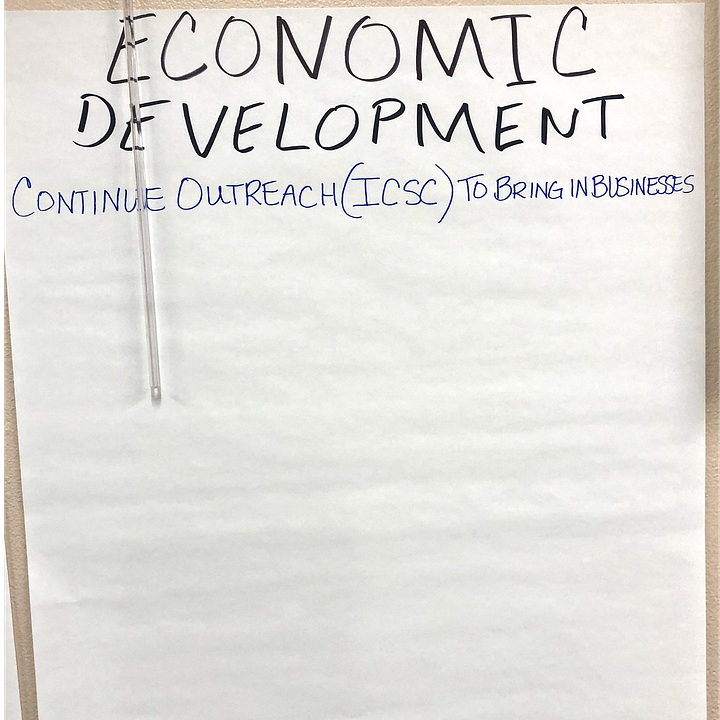 ECONOMIC
DEVELOPMENT
CONTINUE OUTREACH (ICSC) TO BRING IN BUSINESSES